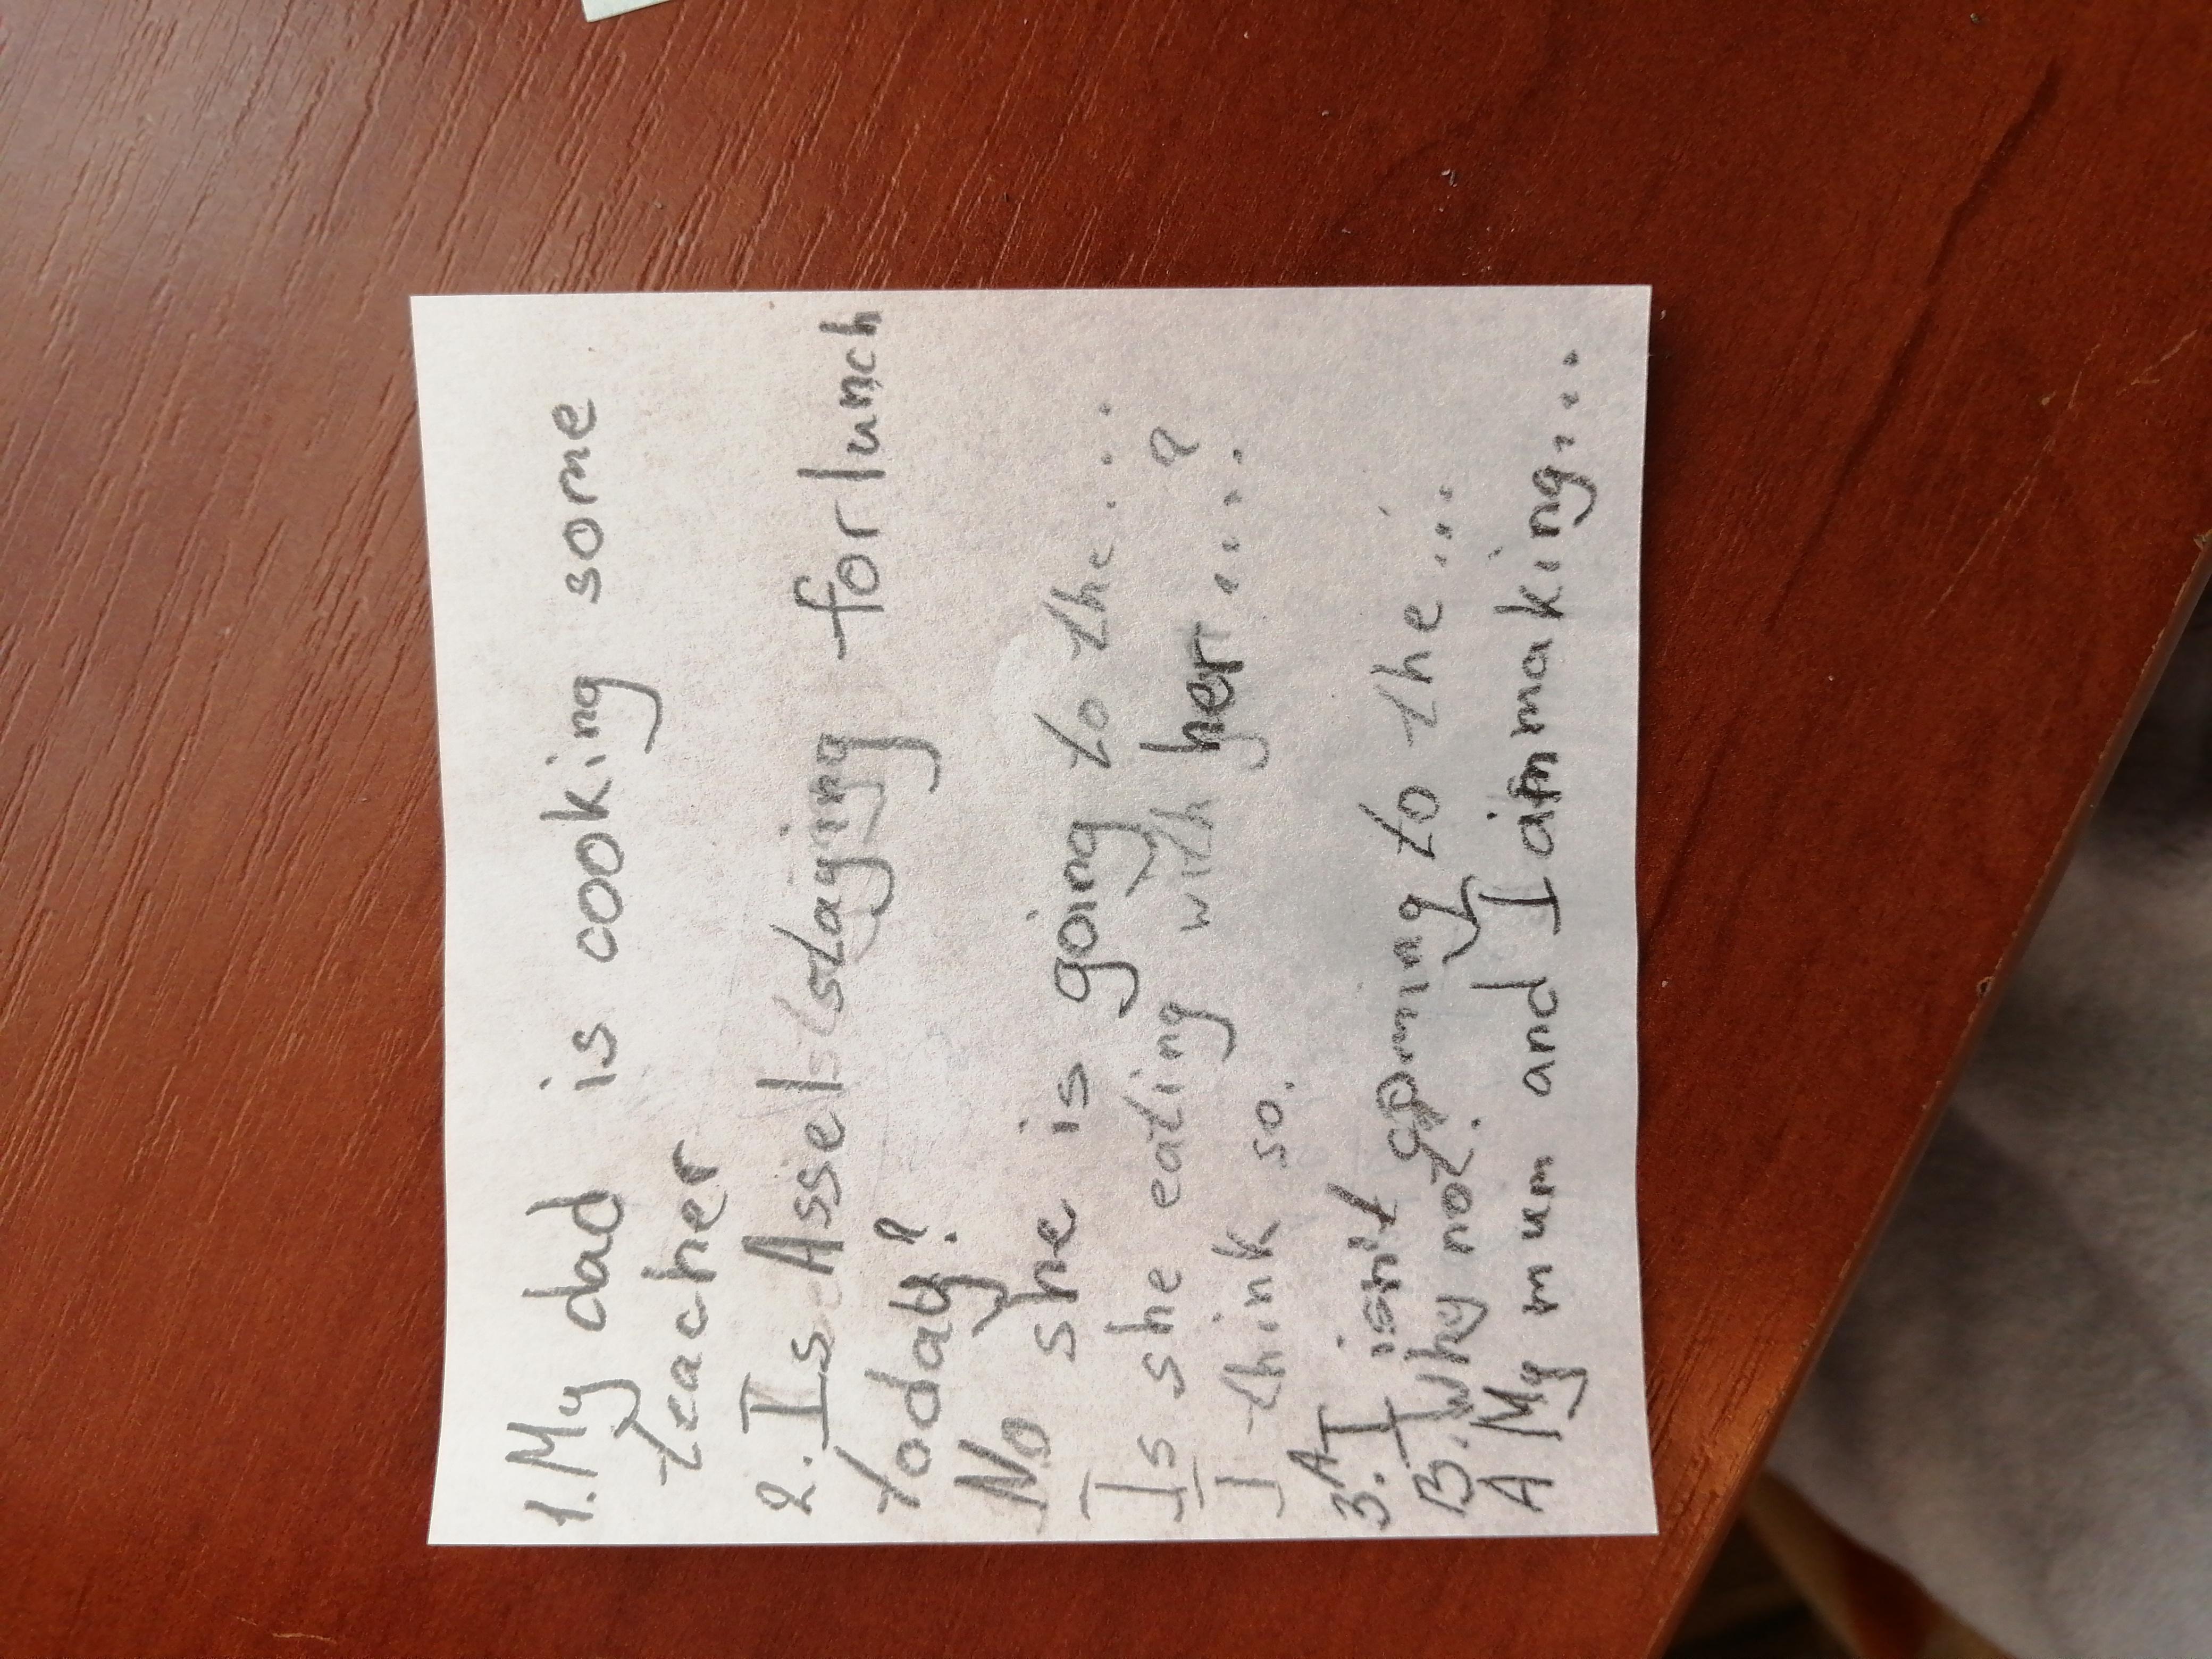 1. My dad is cooking some
teacher
2. Is Assel staying for lunch
today?
No she is going to the....
Is she eating with her....?
I think so.
3. A I isn't coming to the...
B. Why not.
A My mum and I am making....